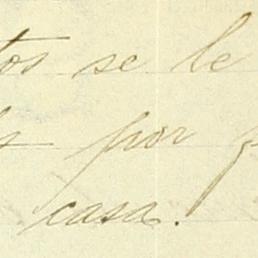 tos se le
s por
casa.